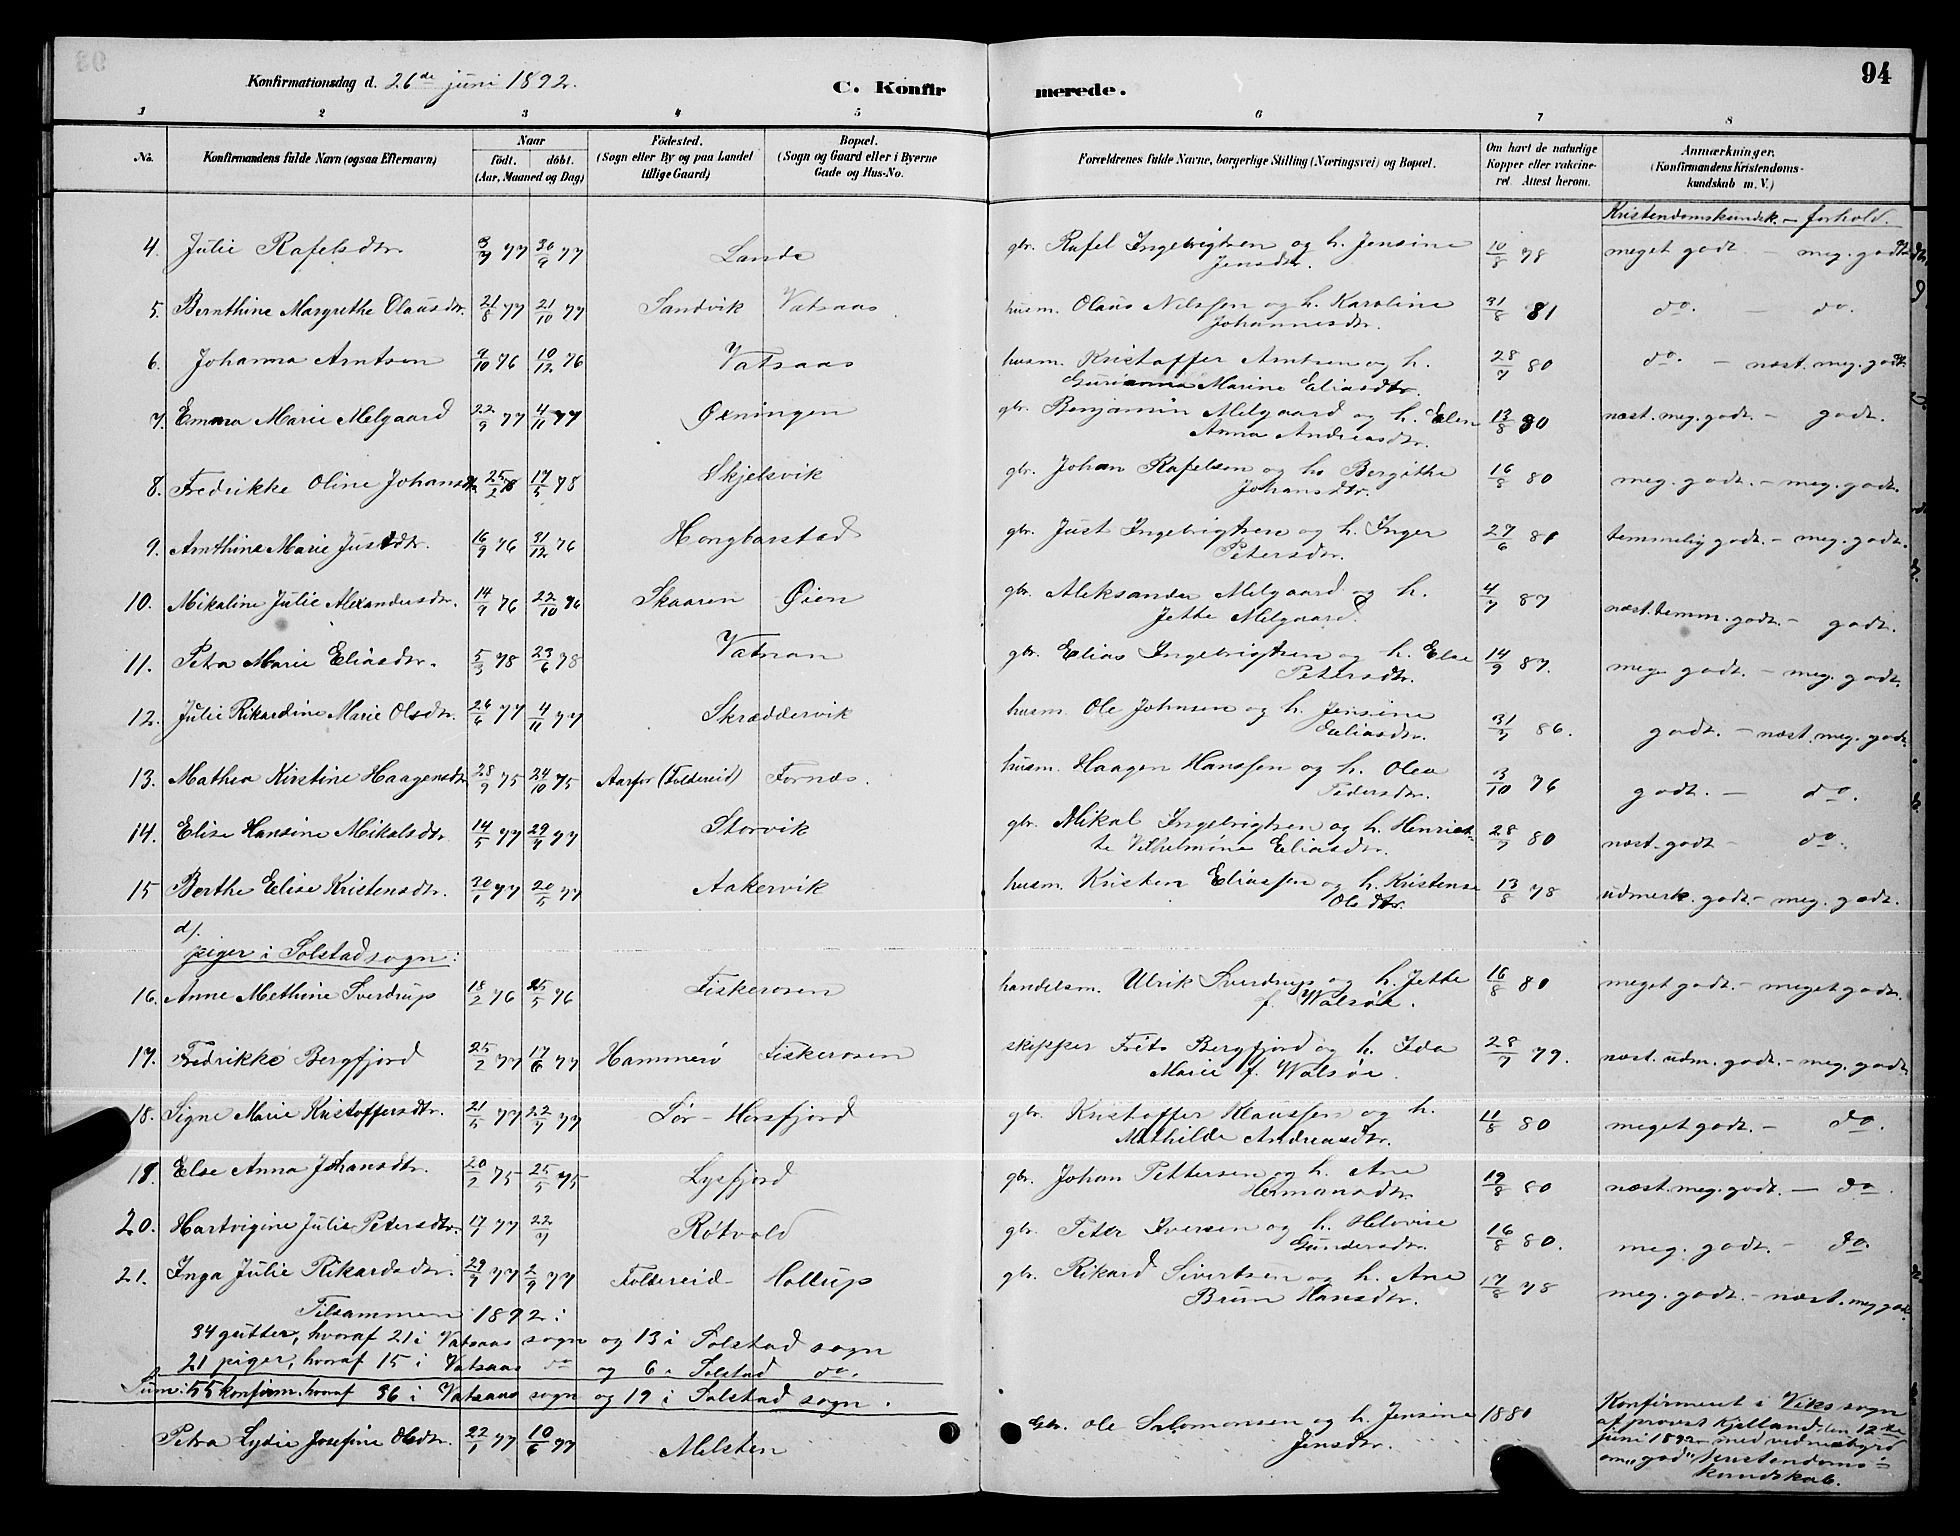 Konfirmationsdag d. 26de juni 1892. C. Konfirmerede. 94
1 2 3 4 5 6 7 8
No. Konfirmandens fulde Navn (ogsaa Efternavn) Naar født. døbt. (Aar, Maaned og Dag) Fødested. (Sogn eller By og paa Landet tillige Gaard) Bopæl. (Sogn og Gaard eller i Byerne Gade og Hus-No. Forældrenes fulde Navne, borgerlige Stilling (Næringsvei) og Bopæl. Om havt de naturlige Kopper eller vakcineret. Attest herom. Anmærkninger. (Konfirmandens Kristendomskundskab m. V.)
Kristendomskundsk. – forhold.
4. Julie Rafelsdtr. 77 30/9 77 Lande gbr. Rafel Ingebrigtsen og h. Jensine Jensdtr. 10/8 78 meget godt. – meg. godt
5. Bernthine Margrethe Olausdtr. 21/8 77 21/10 77 Sandvik Vatsaas husm. Olaus Nilssen og h. Karoline Johannesdtr. 31/8 81 do. – do.
6. Johanna Arntsen 9/10 76 10/12 76 Vatsaas husm. Kristoffer Arntsen og h. Gurianna Marine Eliasdtr. 28/7 80 do. – næst. meg. godt.
7. Emma Marie Melgaard 22/9 77 4/11 77 Øxningen gbr. Benjamin Melgaard og h. Elen Anna Andreasdtr. 13/8 80 næst. meg. godt. – godt.
8. Fredrikke Oline Johansdtr. 25/2 78 17/5 78 Skjelsvik gbr. Johan Rafelsen og h. Bergithe Johansdtr. 16/8 80 meg. godt. – meg. godt.
9. Arnthine Marie Justdtr. 16/9 76 31/12 76 gbr. Just Ingebrigtsen og h. Inger Petersdtr. 27/6 81 temmelig godt. – meg. godt.
10. Mikaline Julie Alexandersdtr. 14/9 76 22/10 76 Skaaren Øien gbr. Aleksander Melgaard og h. Jette Melgaard. 4/7 87 næst. temm. godt. – godt.
11. Petra Marie Eliasdtr. 5/3 78 23/6 78 gbr. Elias Ingebrigtsen og h. Else Petersdtr. 14/9 87. meg. godt. – meg. godt.
12. Julie Rikardine Marie Olsdtr. 26/6 77 4/11 77 Skræddervik husm. Ole Johnsen og h. Jensine Eliasdtr. 31/7 86. godt. – næst. meg. godt.
13. Mathea Kirstine Haagensdtr. 28/9 75 24/10 75 Aarfor (Foldereid) Fornæs. husm. Haagen Hanssen og h. Olea Pedersdtr. 3/10 76 godt. – do.
14. Elise Hansine Mikalsdtr. 14/5 77 29/7 77 Storvik gbr. Mikal Ingebrigtsen og h. Henriette Vilhelmine Eliasdtr. 28/7 80 næst. godt – do.
15 Berthe Elise Kristensdtr. 30/1 77 20/5 77 Aakervik husm. Kristen Eliassen og h. Kristense Olsdtr. 13/8 78 udmerk. godt. – meg. godt.
d). piger i Solstad sogn:
16. Anne Methine Sverdrup 18/2 76 25/5 76 Fiskerosen handelsm. Ulrik Sverdrup og h. Jette f. Walsøe. 16/8 80 meget godt. – meget godt.
17. Fredrikke Bergfjord 25/2 77 17/6 77 Hammerø Fiskerosen skipper Frits Bergfjord og h. Ida Marie f. Walsøe. 28/7 79. næst. udm. godt. – meg. godt.
18. Signe Marie Kristoffersdtr. 21/5 77 22/7 77 Sør-Horsfjord gbr. Kristoffer Klaussen og h. Mathilde Andreasdtr. 11/8 80 meget godt. – do.
19. Else Anna Johansdtr. 20/2 75 25/5 75 Lysfjord gbr. Johan Pettersen og h. Ane Hermansdtr. 19/8 80 næst. meg. godt. – do.
20. Hartvigine Julie Petersdtr. 17/1 77 22/7 Røtvold gbr. Peter Iversen og h. Helovise Gundersdtr. 16/8 80. meg. godt. – do.
21. Inga Julie Rikardsdtr. 29/7 77 2/9 77 Foldereid – Hollup gbr. Rikard Sivertsen og h. Ane Brun Hansdtr. 17/8 78 meg. godt. – næst. meg. godt.
Tilsammen 1892:
34 gutter, hvoraf 21 i Vatsaas sogn og 13 i Solstad sogn
21 piger, hvoraf 15 i Vatsaas do og 6 i Solstad do.
Sum: 55 konfirm. hvoraf 36 i Vatsaas sogn og 19 i Solstad sogn.
Petra Lydie Josefine Olsdtr. 22/1 77 10/6 77 Melsten Gbr. Ole Salomonsen og h. Jensine Jensdtr. 1880 Konfirmeret i Viks sogn af provst Kjelland den 12te juni 1892 med vidnesbyrd om „god" kristendomskundskab.